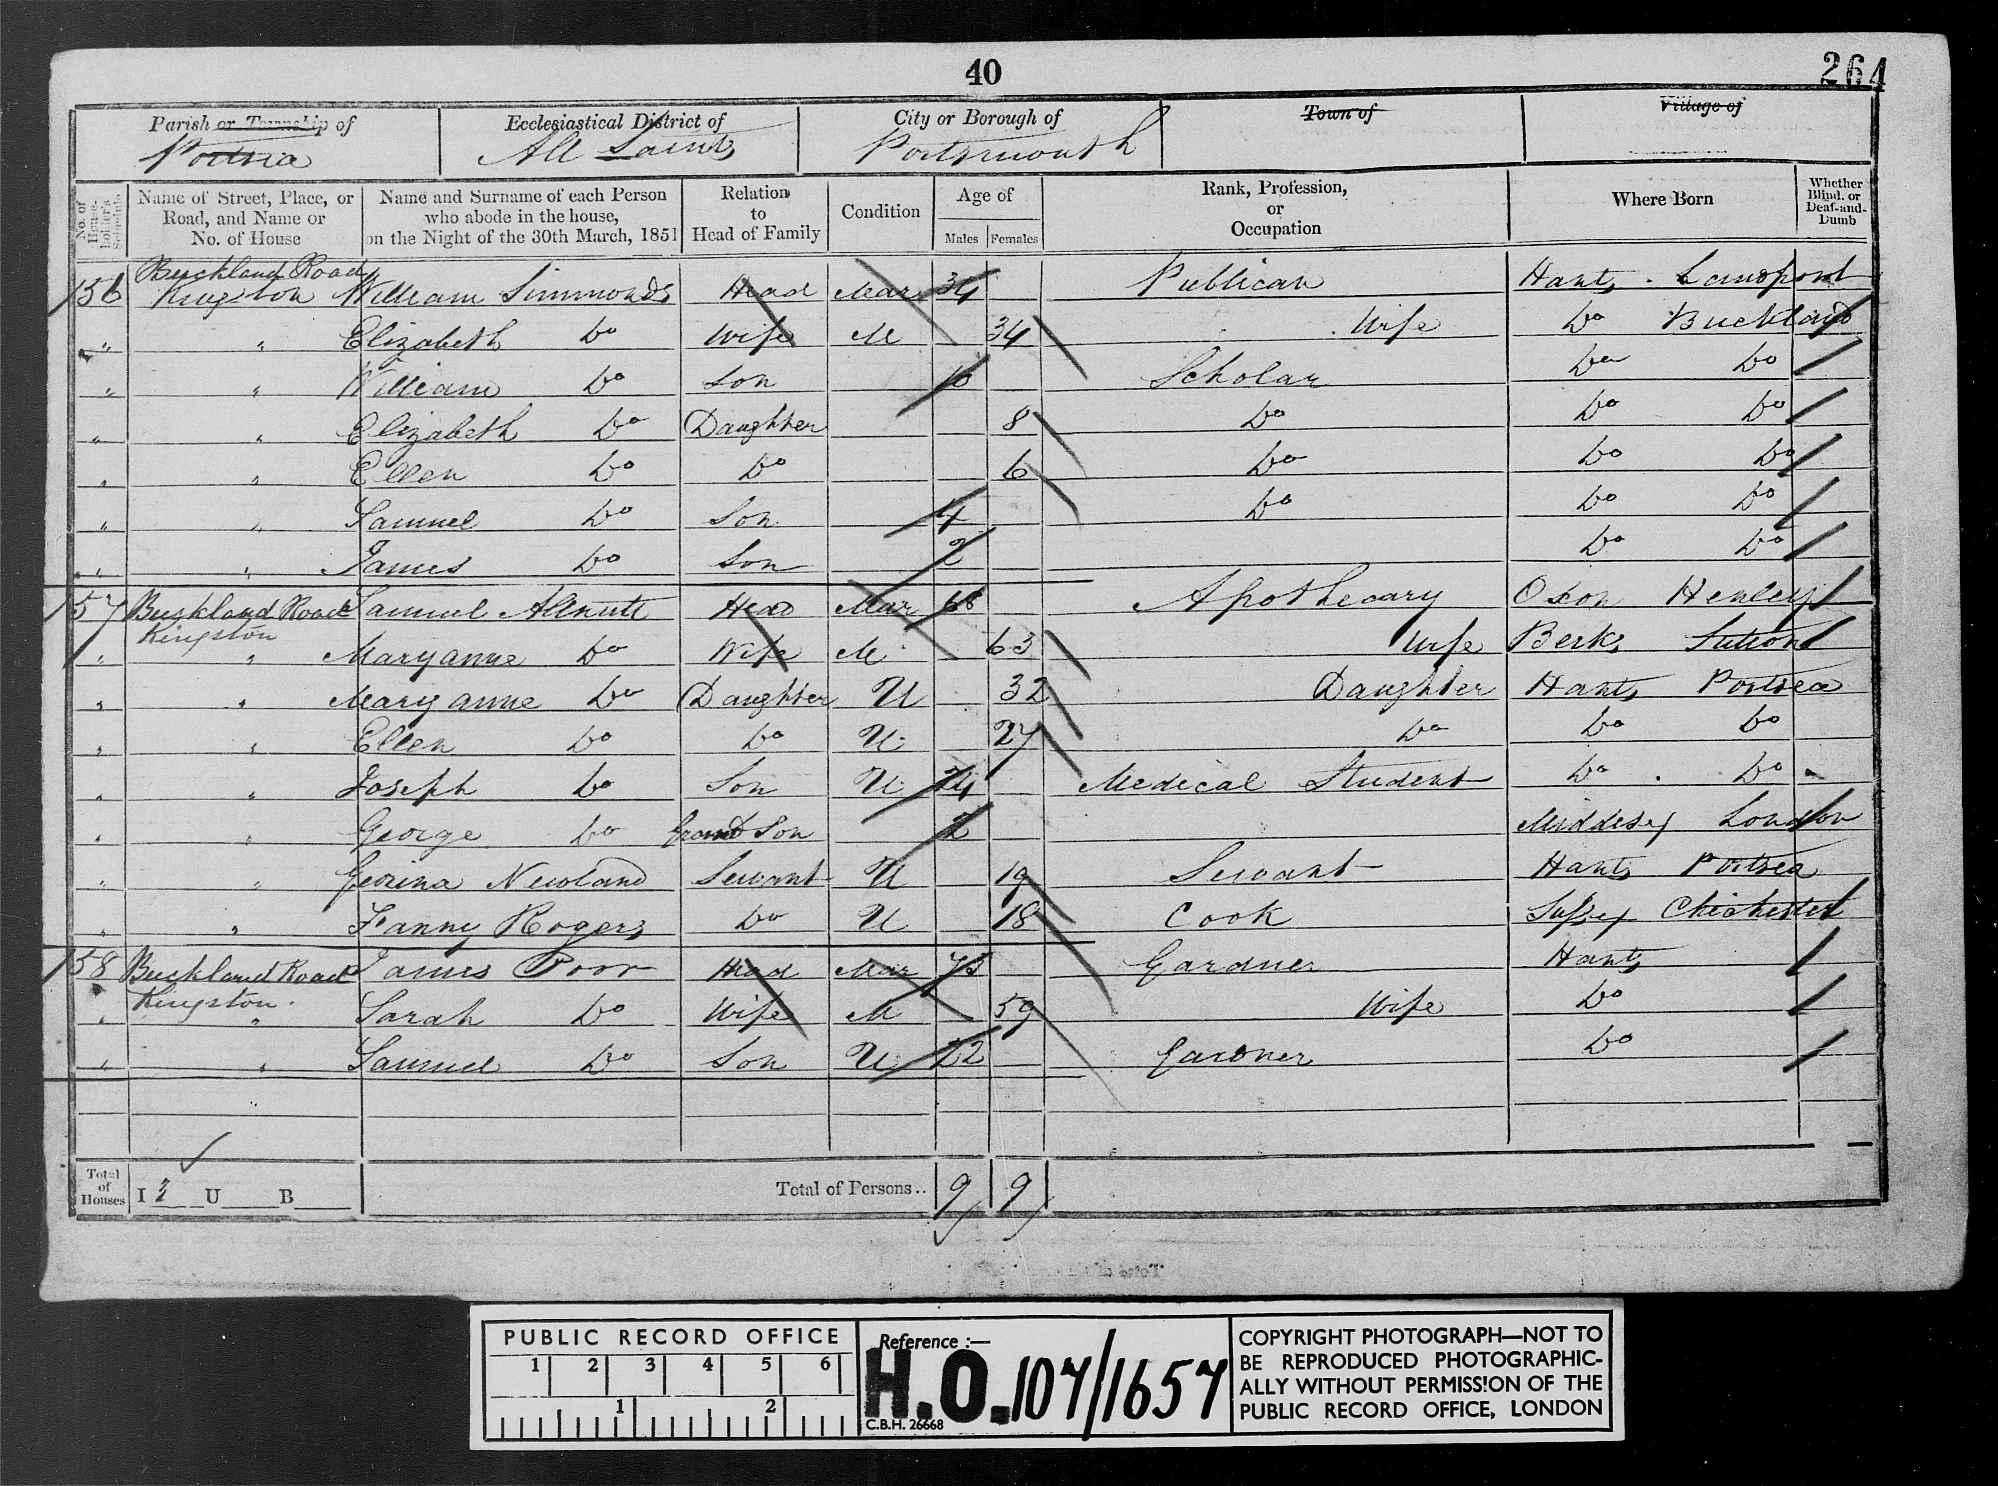 40
264
Parish or Township of Ecclesiastical District of City or Borough of Town of Village of
Portsea All Saints Portsmouth
No. of House-holder's Schedule
Name of Street, Place, or Road, and Name or No. of House
Name and Surname of each Person who abode in the house, on the Night of the 30th March, 1851
Relation to Head of Family
Condition
Age of
Males Females
Rank, Profession, or Occupation
Where Born
Whether Blind, or Deaf-and-Dumb
Buckland Road
156 Kingston William Simmonds Head Mar 34 Publican Hants Landport
" " Elizabeth Do Wife M 34 Wife Do Buckland
" " William Do Son 10 Scholar Do Do
" " Elizabeth Do Daughter 8 Do Do Do
" " Ellen Do Do 6 Do Do Do
" " Samuel Do Son 4 Do Do Do
" " James Do Son 2 Do Do
157 Buckland Road Samuel Allnutt Head Mar 68 Apothecary Oxon Henley
Kingston
" " Maryanne Do Wife M 63 Wife Berks Sutton
" " Maryanne Do Daughter U 32 Daughter Hants Portsea
" " Ellen Do Do U 27 Do Do Do
" " Joseph Do Son U 24 Medical Student Do Do
" " George Do Grand Son 2 Middlesex London
" " Newland Servant U 19 Servant Hants Portsea
" " Fanny Rogers Do U 18 Cook Sussex Chichester
158 Buckland Road James Poor Head Mar 73 Gardner Hants
Kingston
" " Sarah Do Wife M 59 Wife Do
" " Samuel Do Son U 22 Gardner Do
Total of Houses I 3 U B Total of Persons.. 9 9
PUBLIC RECORD OFFICE
1 2 3 4 5 6
1 2
Reference :—
H.O. 107/1657
C.B.H. 26668
COPYRIGHT PHOTOGRAPH—NOT TO
BE REPRODUCED PHOTOGRAPHIC-
ALLY WITHOUT PERMISSION OF THE
PUBLIC RECORD OFFICE, LONDON